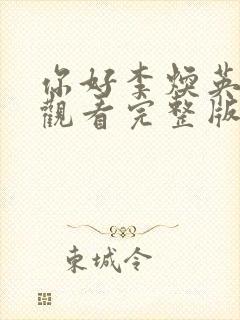 你好李煥英
觀看完整版
東城令